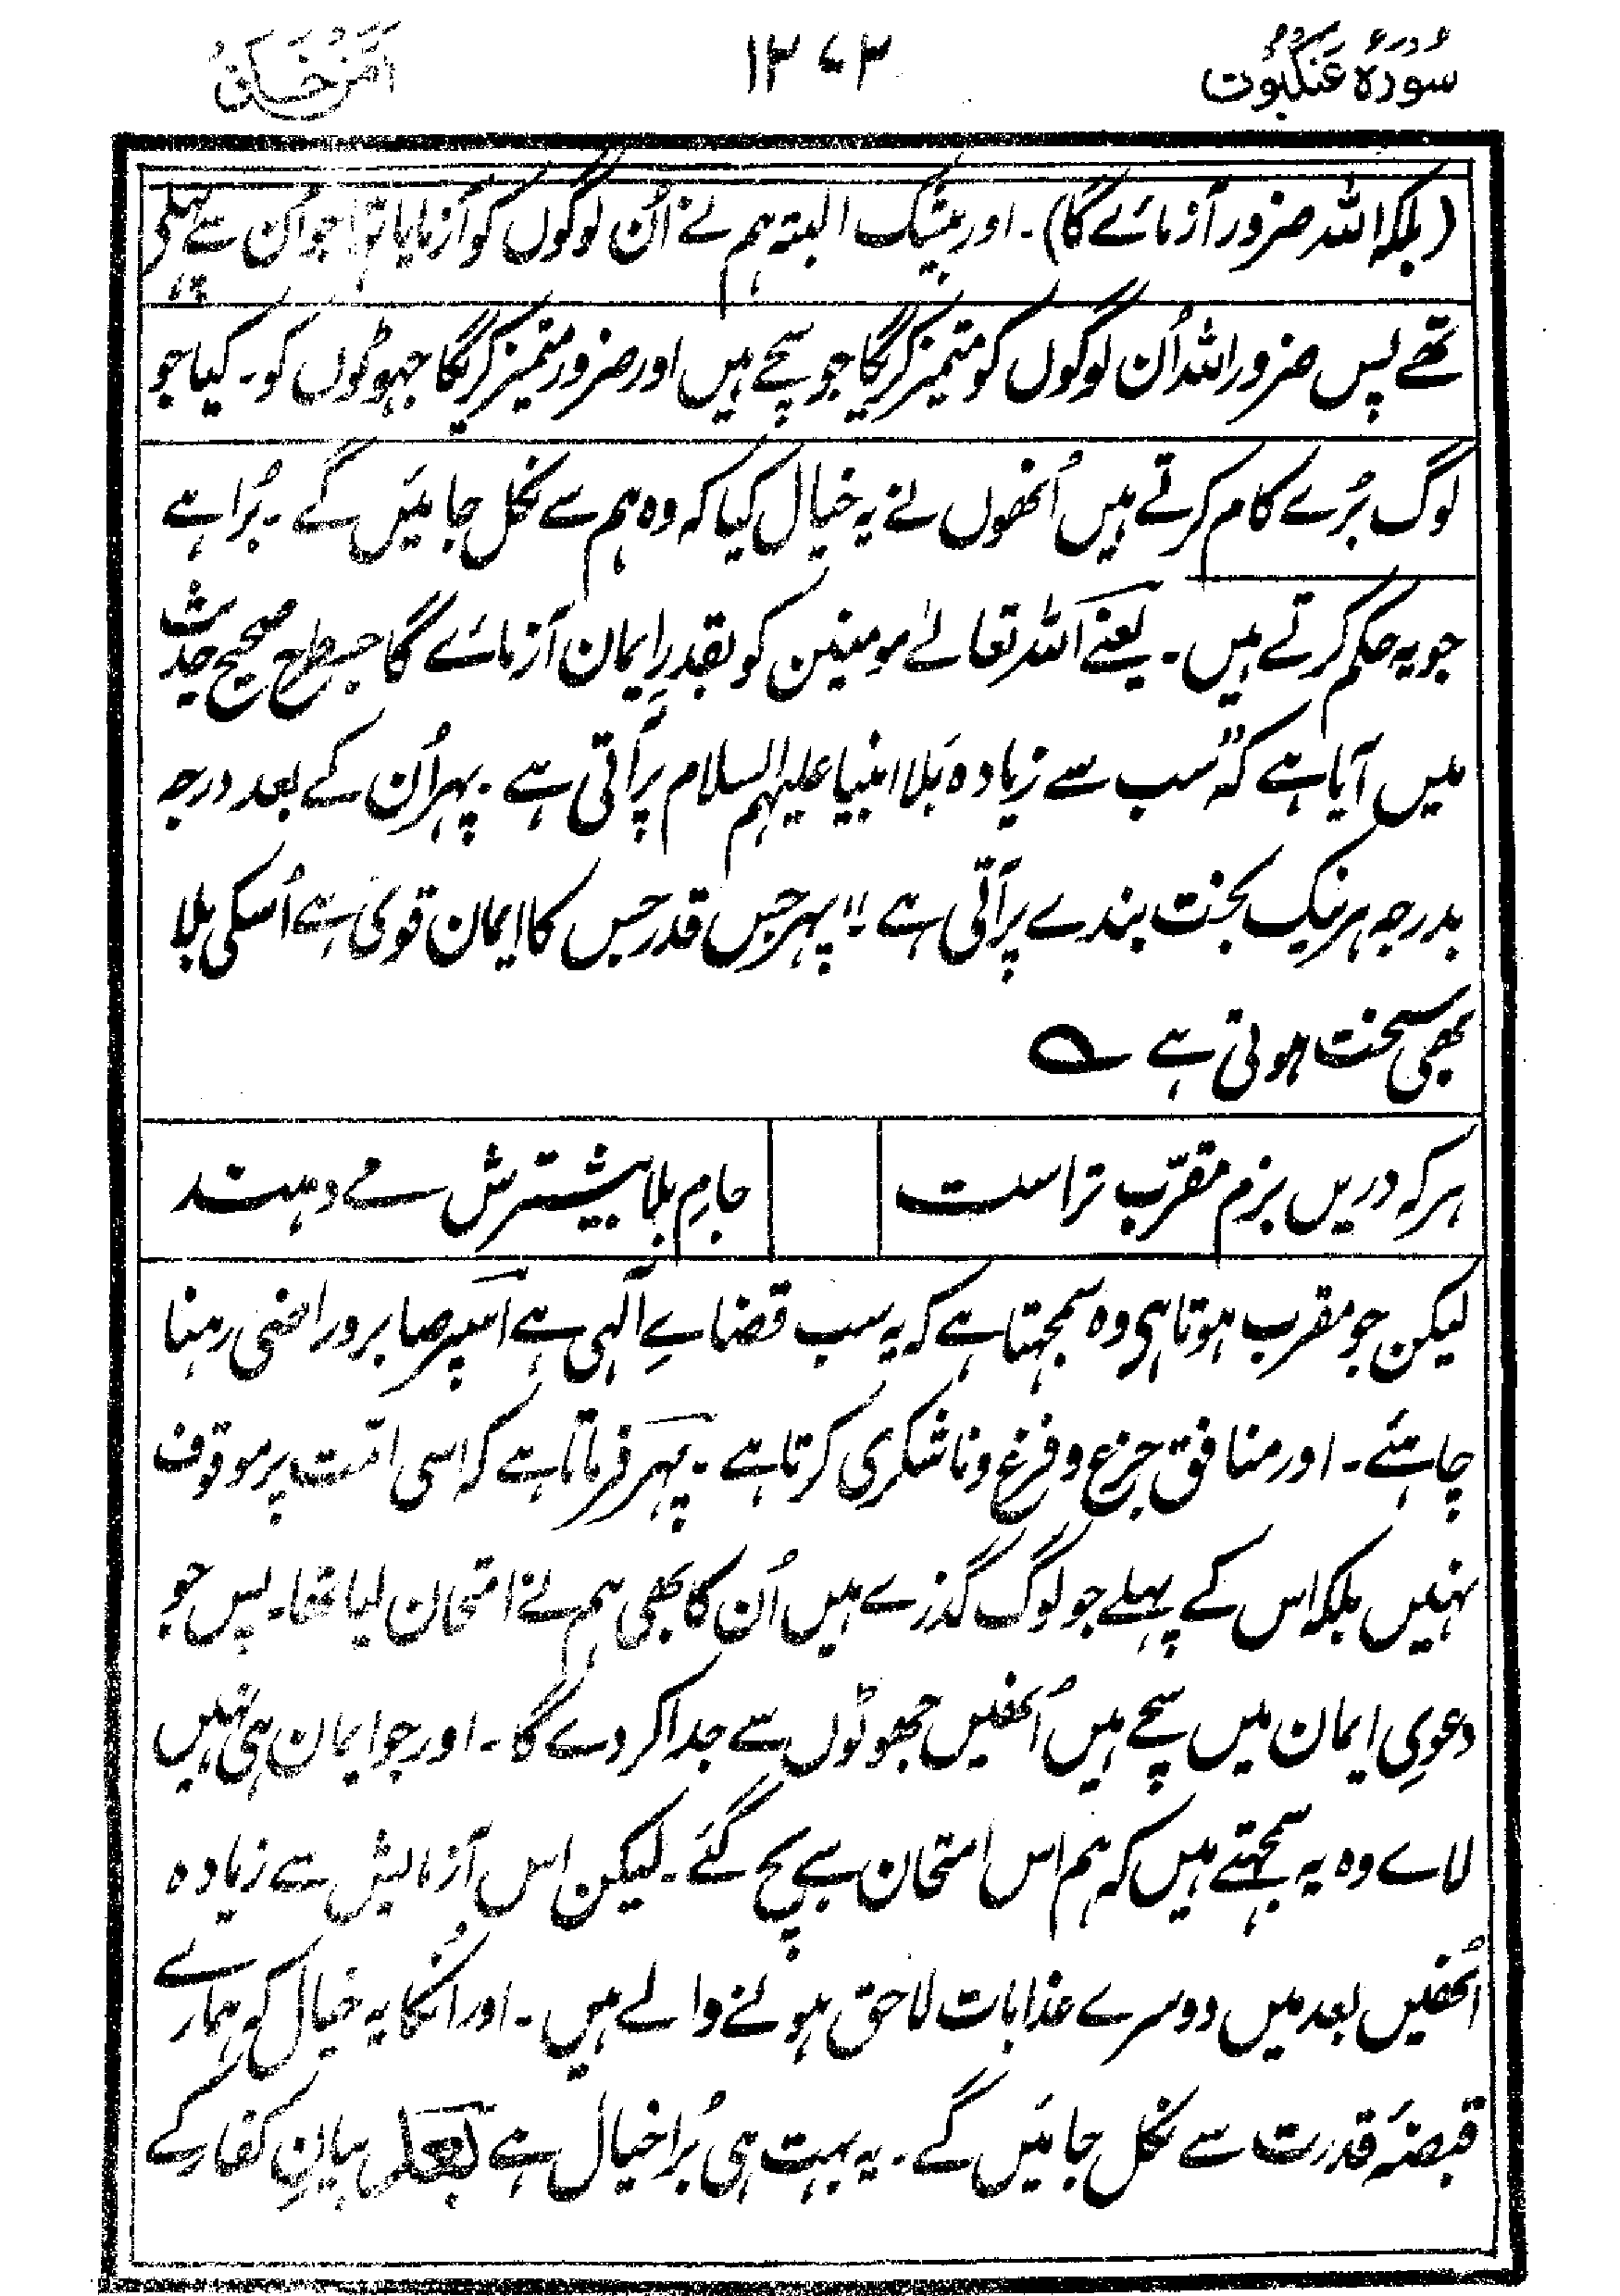 سُوْرَۂ عَنْکَبُوْت
۱۲۷۳
اَمَّنْ خَلَقَ
(بلکہ اللہ ضرور آزمائے گا)۔ اور بیشک البتہ ہم نے اُن لوگوں کو آزمایا تھا جو اُن سے پہلے
تھے پس ضرور اللہ اُن لوگوں کو متمیز کریگا جو سچے ہیں اور ضرور متمیز کریگا جہوٹوں کو۔ کیا جو
لوگ بُرے کام کرتے ہیں اُنھوں نے یہ خیال کیا کہ وہ ہم سے نکل جائیں گے۔ بُرا ہے
جو یہ حکم کرتے ہیں۔ یعنے اللہ تعالےٰ مومنین کو بقدرِ ایمان آزمائے گا جسطرح صحیح حدیث
میں آیا ہے کہ "سب سے زیادہ بَلا انبیا علیہم السلام پر آتی ہے۔ پہر اُن کے بعد درجہ
بدرجہ ہر نیک بخت بندے پر آتی ہے"۔ پہر جس قدر جس کا ایمان قوی ہے اُسکی بلا
بھی سخت ہوتی ہے ؎
ہر کہ دریں بزم مقرّب تر است جامِ بلا بیشترش مے دہند
لیکن جو مقرب ہوتا ہی وہ سمجہتا ہے کہ یہ سب قضاےِ آلہی ہے اسپر صابر و راضی رہنا
چاہئے۔ اور منافق جزع و فزع و ناشکری کرتا ہے۔ پہر فرماتا ہے کہ اسی امّت پر موقوف
نہیں بلکہ اس کے پہلے جو لوگ گذرے ہیں اُن کا بھی ہم نے امتحان لیا تھا۔ پس جو
دعویِ ایمان میں سچے ہیں اُنھیں جھوٹوں سے جدا کر دے گا۔ اور جو ایمان ہی نہیں
لاے وہ یہ سمجہتے ہیں کہ ہم اس امتحان سے بچ گئے۔ لیکن اس آزمایش سے زیادہ
اُنھیں بعد میں دوسرے عذابات لاحق ہونے والے ہیں۔ اور اُنکا یہ خیال کہ ہمارے
قبضۂ قدرت سے نکل جائیں گے۔ یہ بہت ہی بُرا خیال ہے بَعد بیانِ کفار کے